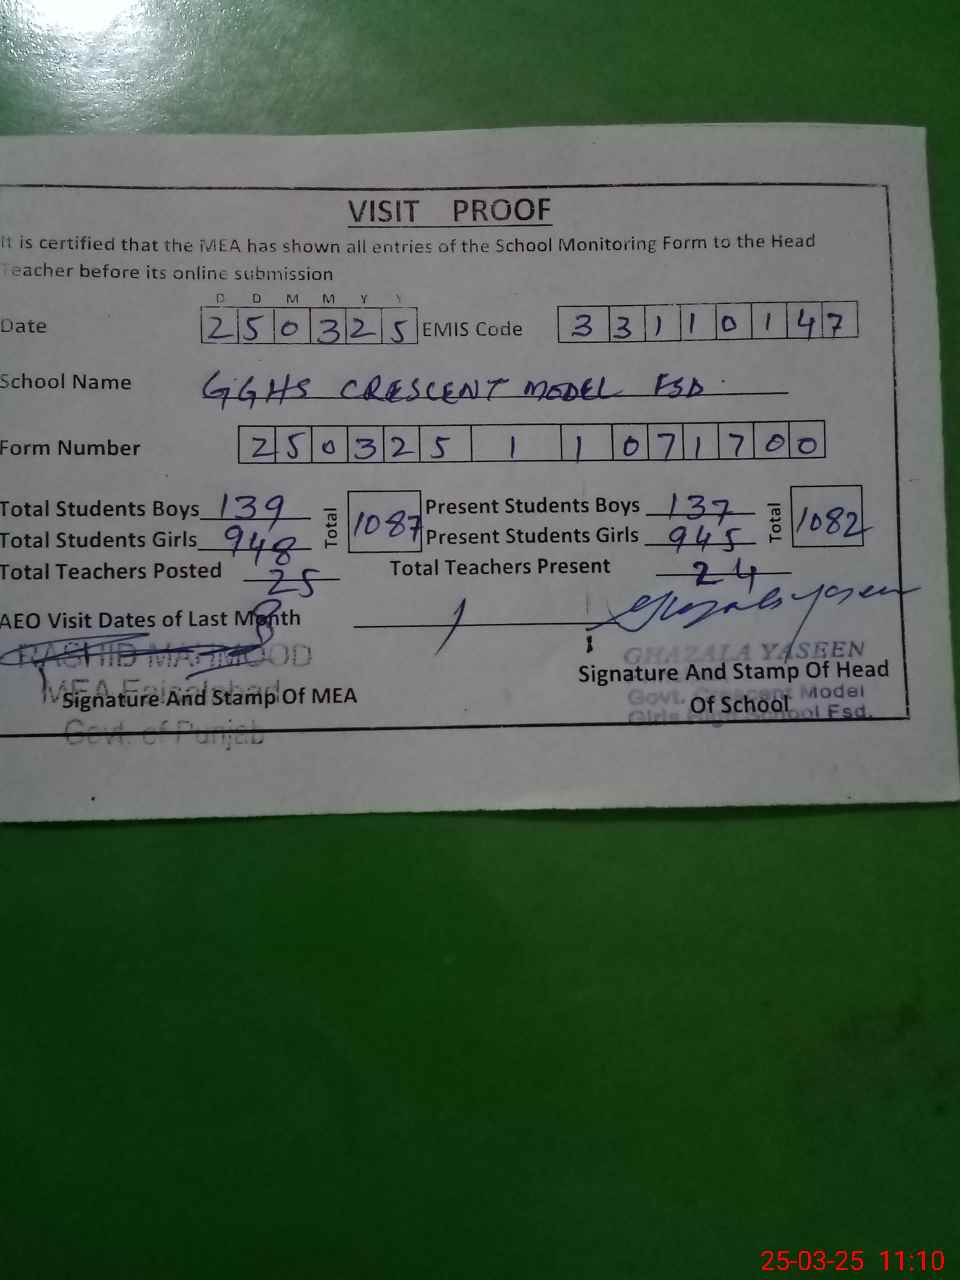 VISIT PROOF
It is certified that the MEA has shown all entries of the School Monitoring Form to the Head
Teacher before its online submission
D D M M Y Y
Date 2 5 0 3 2 5 EMIS Code 3 3 1 1 0 1 4 7
School Name GGHS CRESCENT MODEL FSD.
Form Number 2 5 0 3 2 5 1 1 0 7 1 7 0 0
Total Students Boys 139 Total 1087 Present Students Boys 137 Total 1082
Total Students Girls 948 Present Students Girls 945
Total Teachers Posted 25 Total Teachers Present 24
AEO Visit Dates of Last Month
RASHID MAHMOOD
MEA Faisalabad
Signature And Stamp Of MEA
Govt. of Punjab
GHAZALA YASEEN
Signature And Stamp Of Head
Govt. Crescent Model
Of School
Girls High School Fsd.
25-03-25 11:10